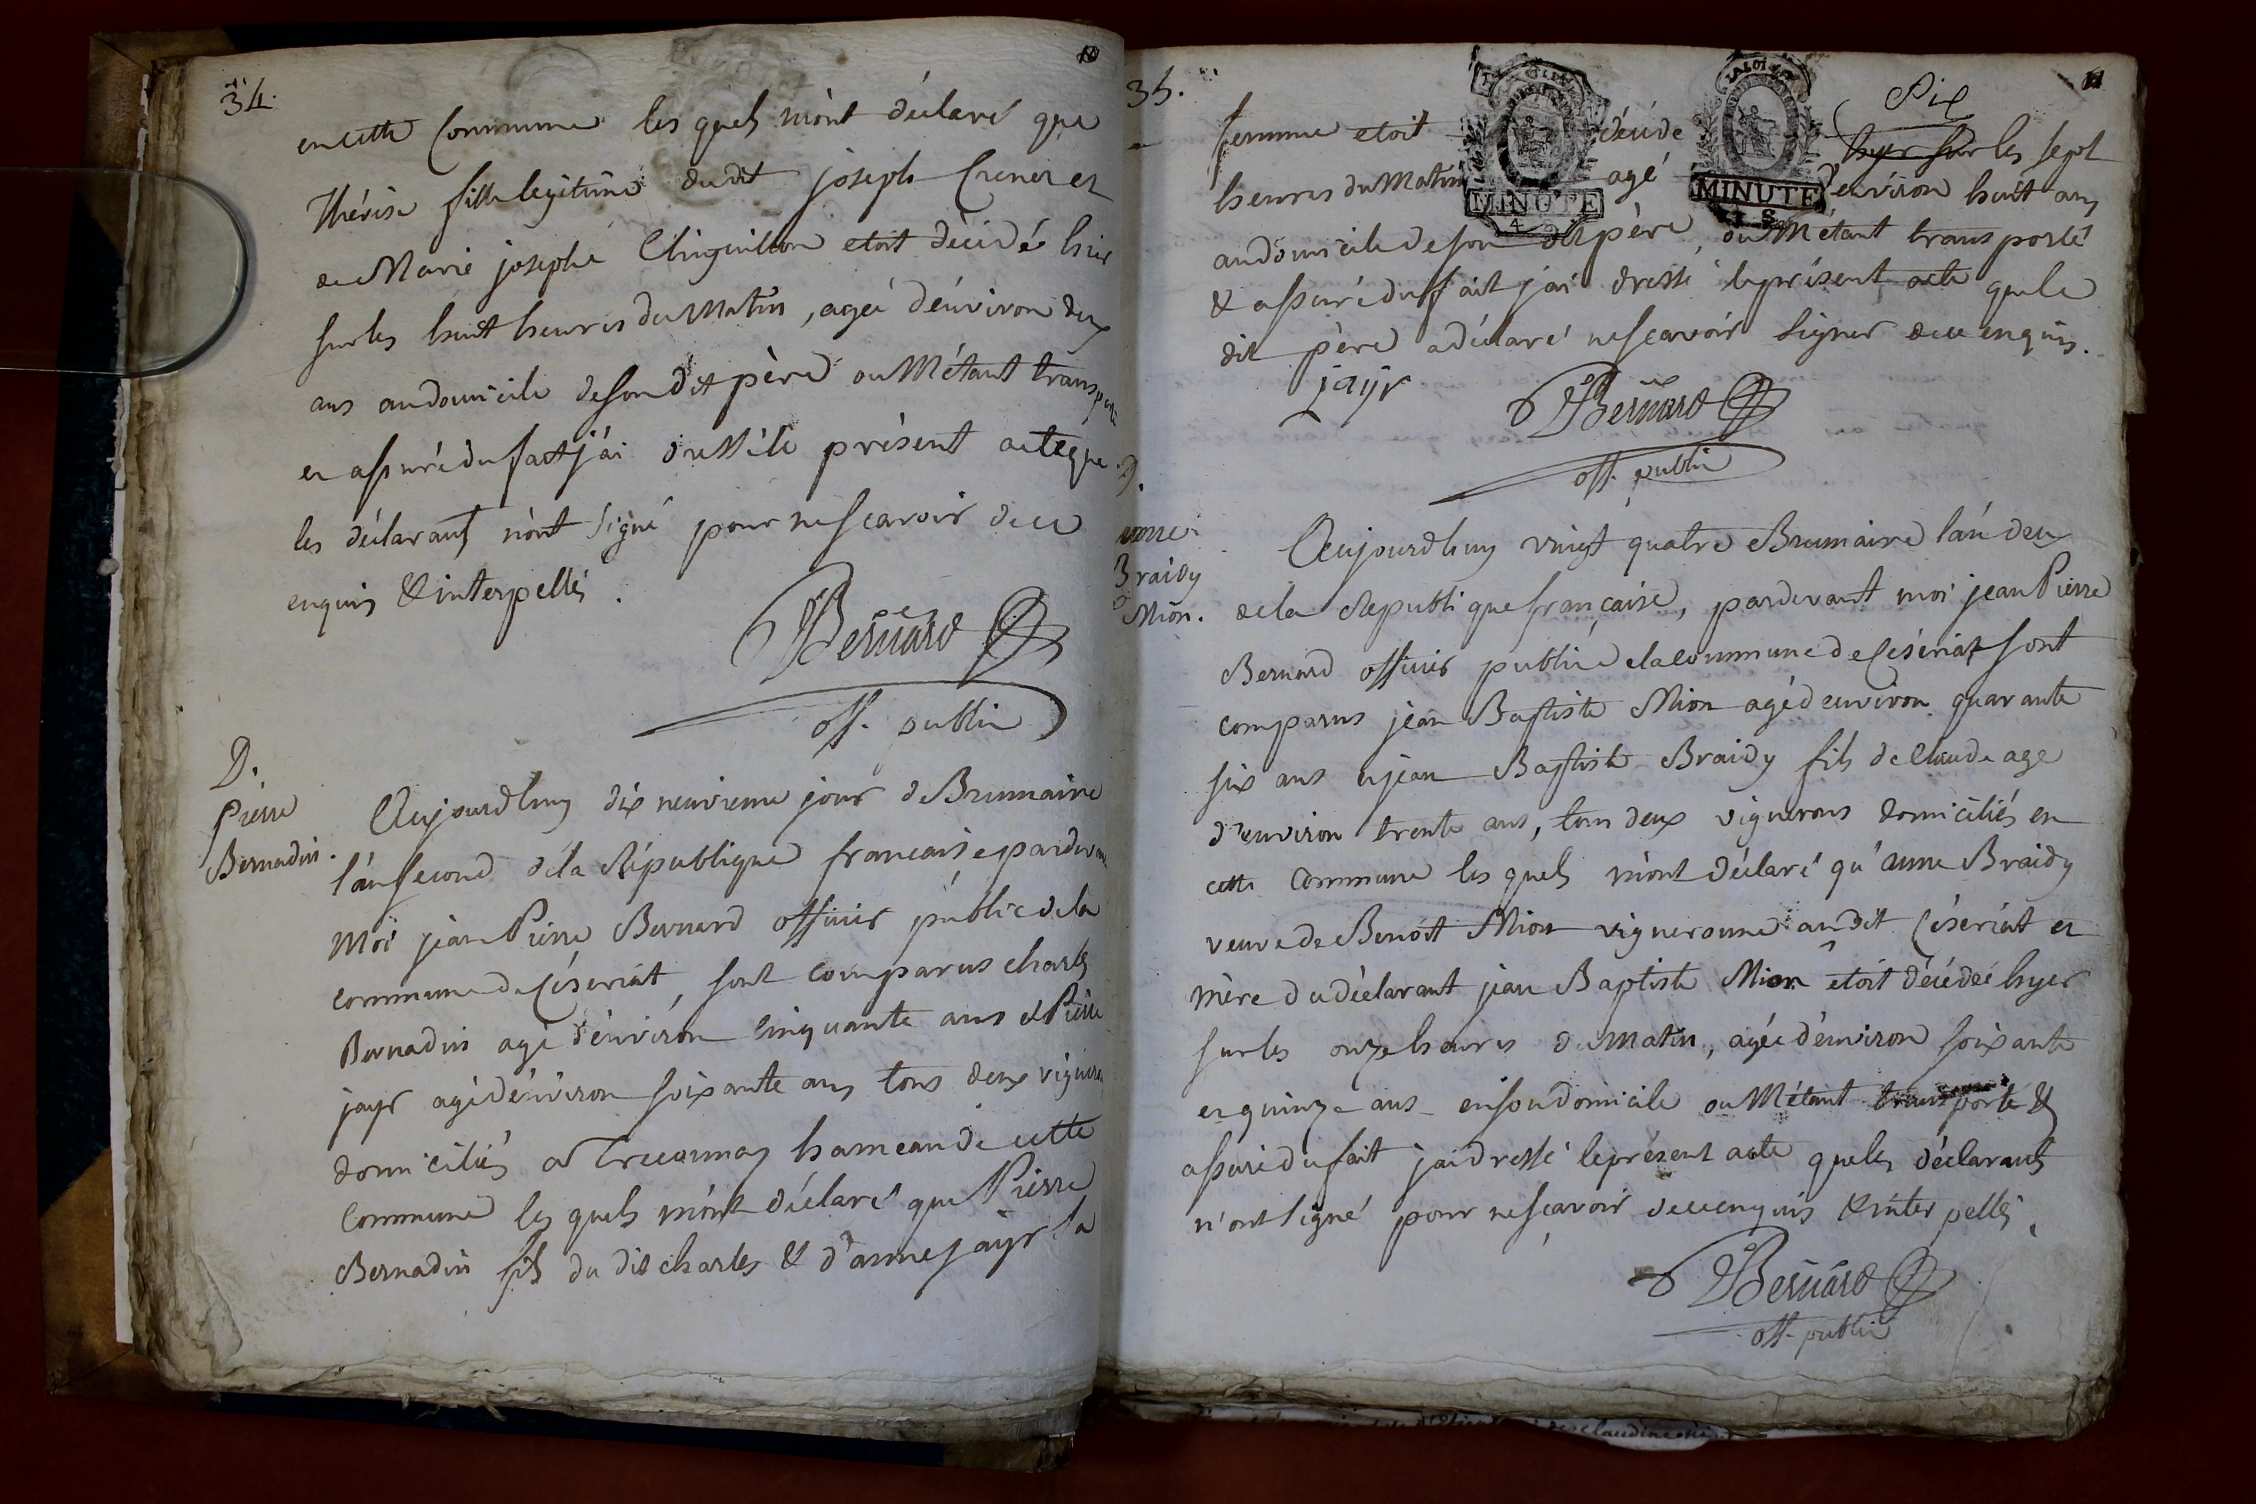 34.
10
en cette Commune les quels m'ont déclaré que
Thérèse fille legitime dudit joseph Crenet et
de Marie josephe etoit décédé hier
sur les huit heures du Matin, agée d'environ deux
ans au domicile de son dit père ou M'étant transporté
et assuré du fait j'ai dressé le présent acte que
les déclarants n'ont signé pour ne sçavoir de ce
enquis & interpellés.
Bernard
off. public
D.
Pierre
Bernadin.
Aujourdhuy dix neuvieme jour de Brumaire
l'an second de la République francaise pardevant
Moi jean Pierre Bernard officier public de la
commune de Céseriat, sont comparus charles
Bernadin agé d'environ cinquante ans et Pierre
jayr agé d'environ soixante ans tous deux vignerons
domiciliés a hameau de cette
Commune les quels m'ont déclaré que Pierre
Bernadin fils du dit charles & d'anne jayr sa
35.
11
Six
femme etoit décédé hyer sur les sept
heures du Matin agé d'environ huit ans
MINUTE
4 S
MINUTE
au domicile de son dit père, ou M'étant transporté
& assuré du fait j'ai dressé le présent acte que le
dit père a déclaré ne sçavoir signer de ce enquis.
jayr
Bernard
off. public
D.
anne
Braidy
Mion.
Aujourdhuy vingt quatre Brumaire l'an deux
de la Republique française, pardevant moi jean Pierre
Bernard officier public de la commune de Céseriat sont
comparus jean Baptiste Mion agé d'environ quarante
six ans et jean Baptiste Braidy fils de Claude age
d'environ trente ans, tous deux vignerons domiciliés en
cette Commune les quels m'ont déclaré qu'anne Braidy
veuve de Benoit Mion vigneronne au dit Céseriat et
mère du déclarant jean Baptiste Mion etoit décédée hyer
sur les onze heures du matin, agée d'environ soixante
et quinze ans en son domicile ou M'étant transporté &
assuré du fait j'ai dressé le présent acte que les déclarants
n'ont signé pour ne sçavoir de ce enquis & interpellés.
Bernard
off. public